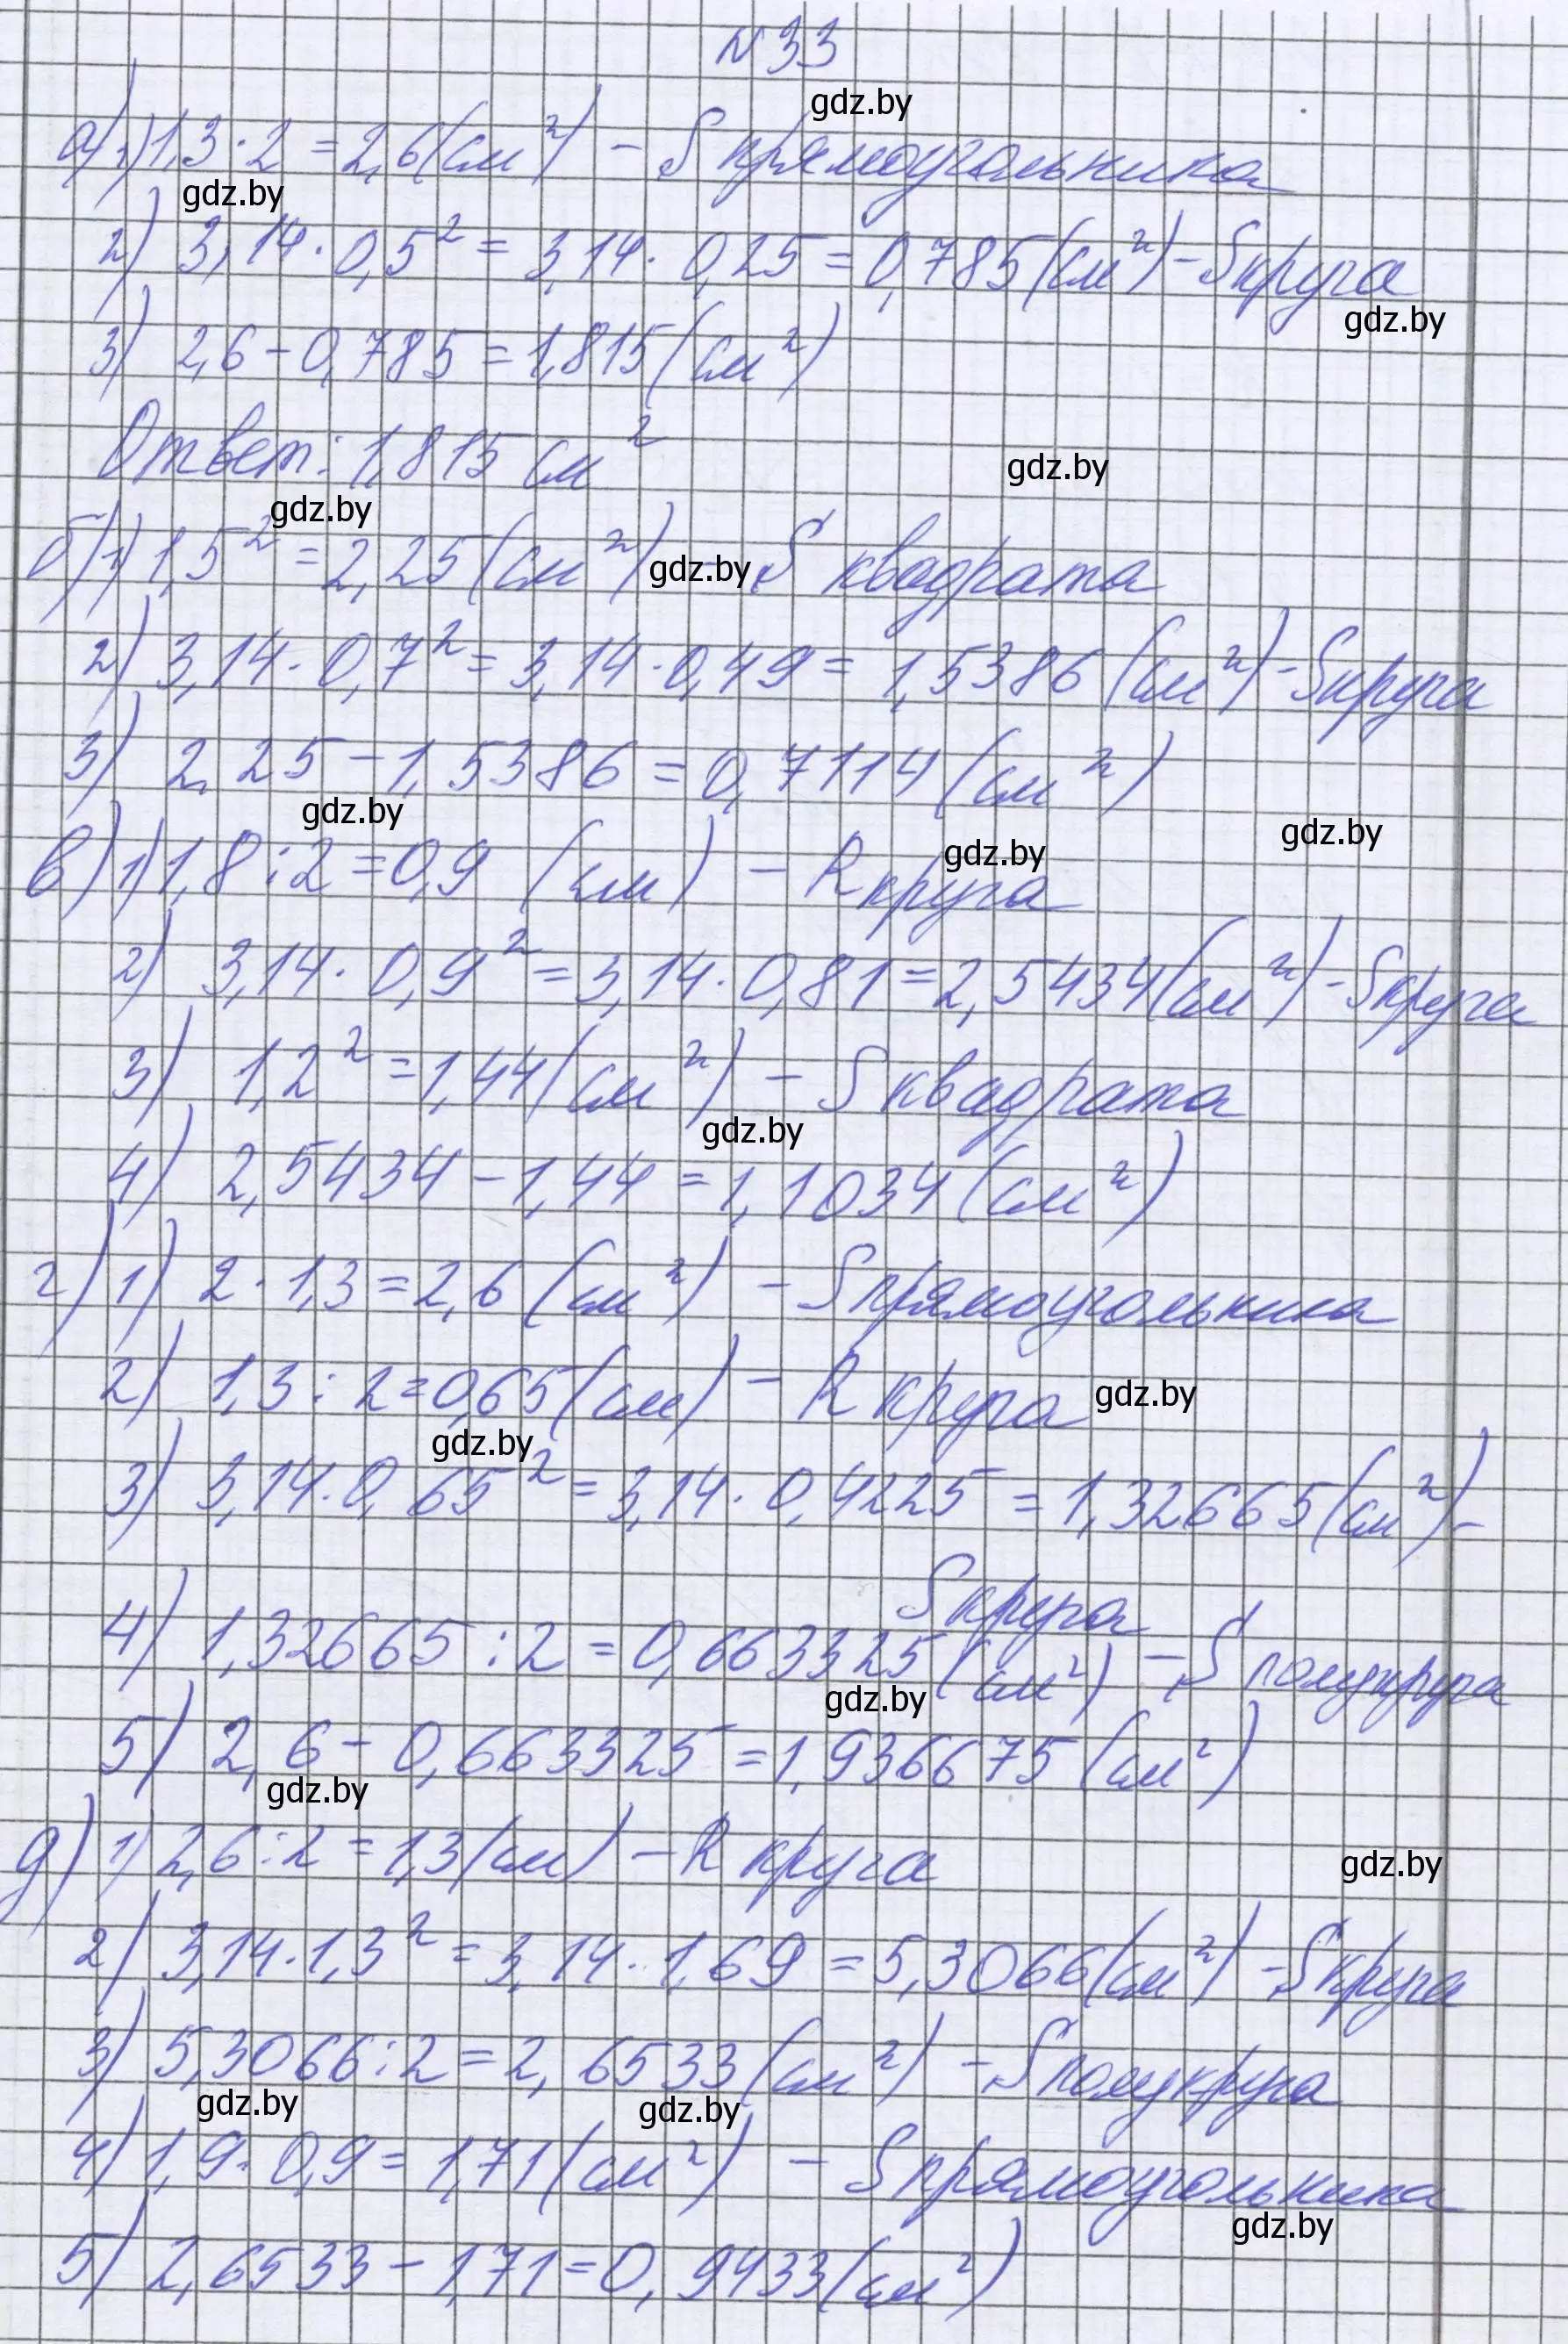 N 33
gdz.by
а) 1) 1,3 · 2 = 2,6 (см²) – S прямоугольника
gdz.by
2) 3,14 · 0,5² = 3,14 · 0,25 = 0,785 (см²) – S круга
gdz.by
3) 2,6 – 0,785 = 1,815 (см²)
Ответ: 1,815 см²
gdz.by
gdz.by
б) 1) 1,5² = 2,25 (см²) – S квадрата
gdz.by
2) 3,14 · 0,7² = 3,14 · 0,49 = 1,5386 (см²) – S круга
3) 2,25 – 1,5386 = 0,7114 (см²)
gdz.by
gdz.by
в) 1) 1,8 : 2 = 0,9 (см) – R круга
gdz.by
2) 3,14 · 0,9² = 3,14 · 0,81 = 2,5434 (см²) – S круга
3) 1,2² = 1,44 (см²) – S квадрата
gdz.by
4) 2,5434 – 1,44 = 1,1034 (см²)
г) 1) 2 · 1,3 = 2,6 (см²) – S прямоугольника
2) 1,3 : 2 = 0,65 (см) – R круга
gdz.by
gdz.by
3) 3,14 · 0,65² = 3,14 · 0,4225 = 1,32665 (см²) –
S круга
4) 1,32665 : 2 = 0,663325 (см²) – S полукруга
gdz.by
5) 2,6 – 0,663325 = 1,936675 (см²)
gdz.by
д) 1) 2,6 : 2 = 1,3 (см) – R круга
gdz.by
2) 3,14 · 1,3² = 3,14 · 1,69 = 5,3066 (см²) – S круга
3) 5,3066 : 2 = 2,6533 (см²) – S полукруга
gdz.by
gdz.by
4) 1,9 · 0,9 = 1,71 (см²) – S прямоугольника
gdz.by
5) 2,6533 – 1,71 = 0,9433 (см²)